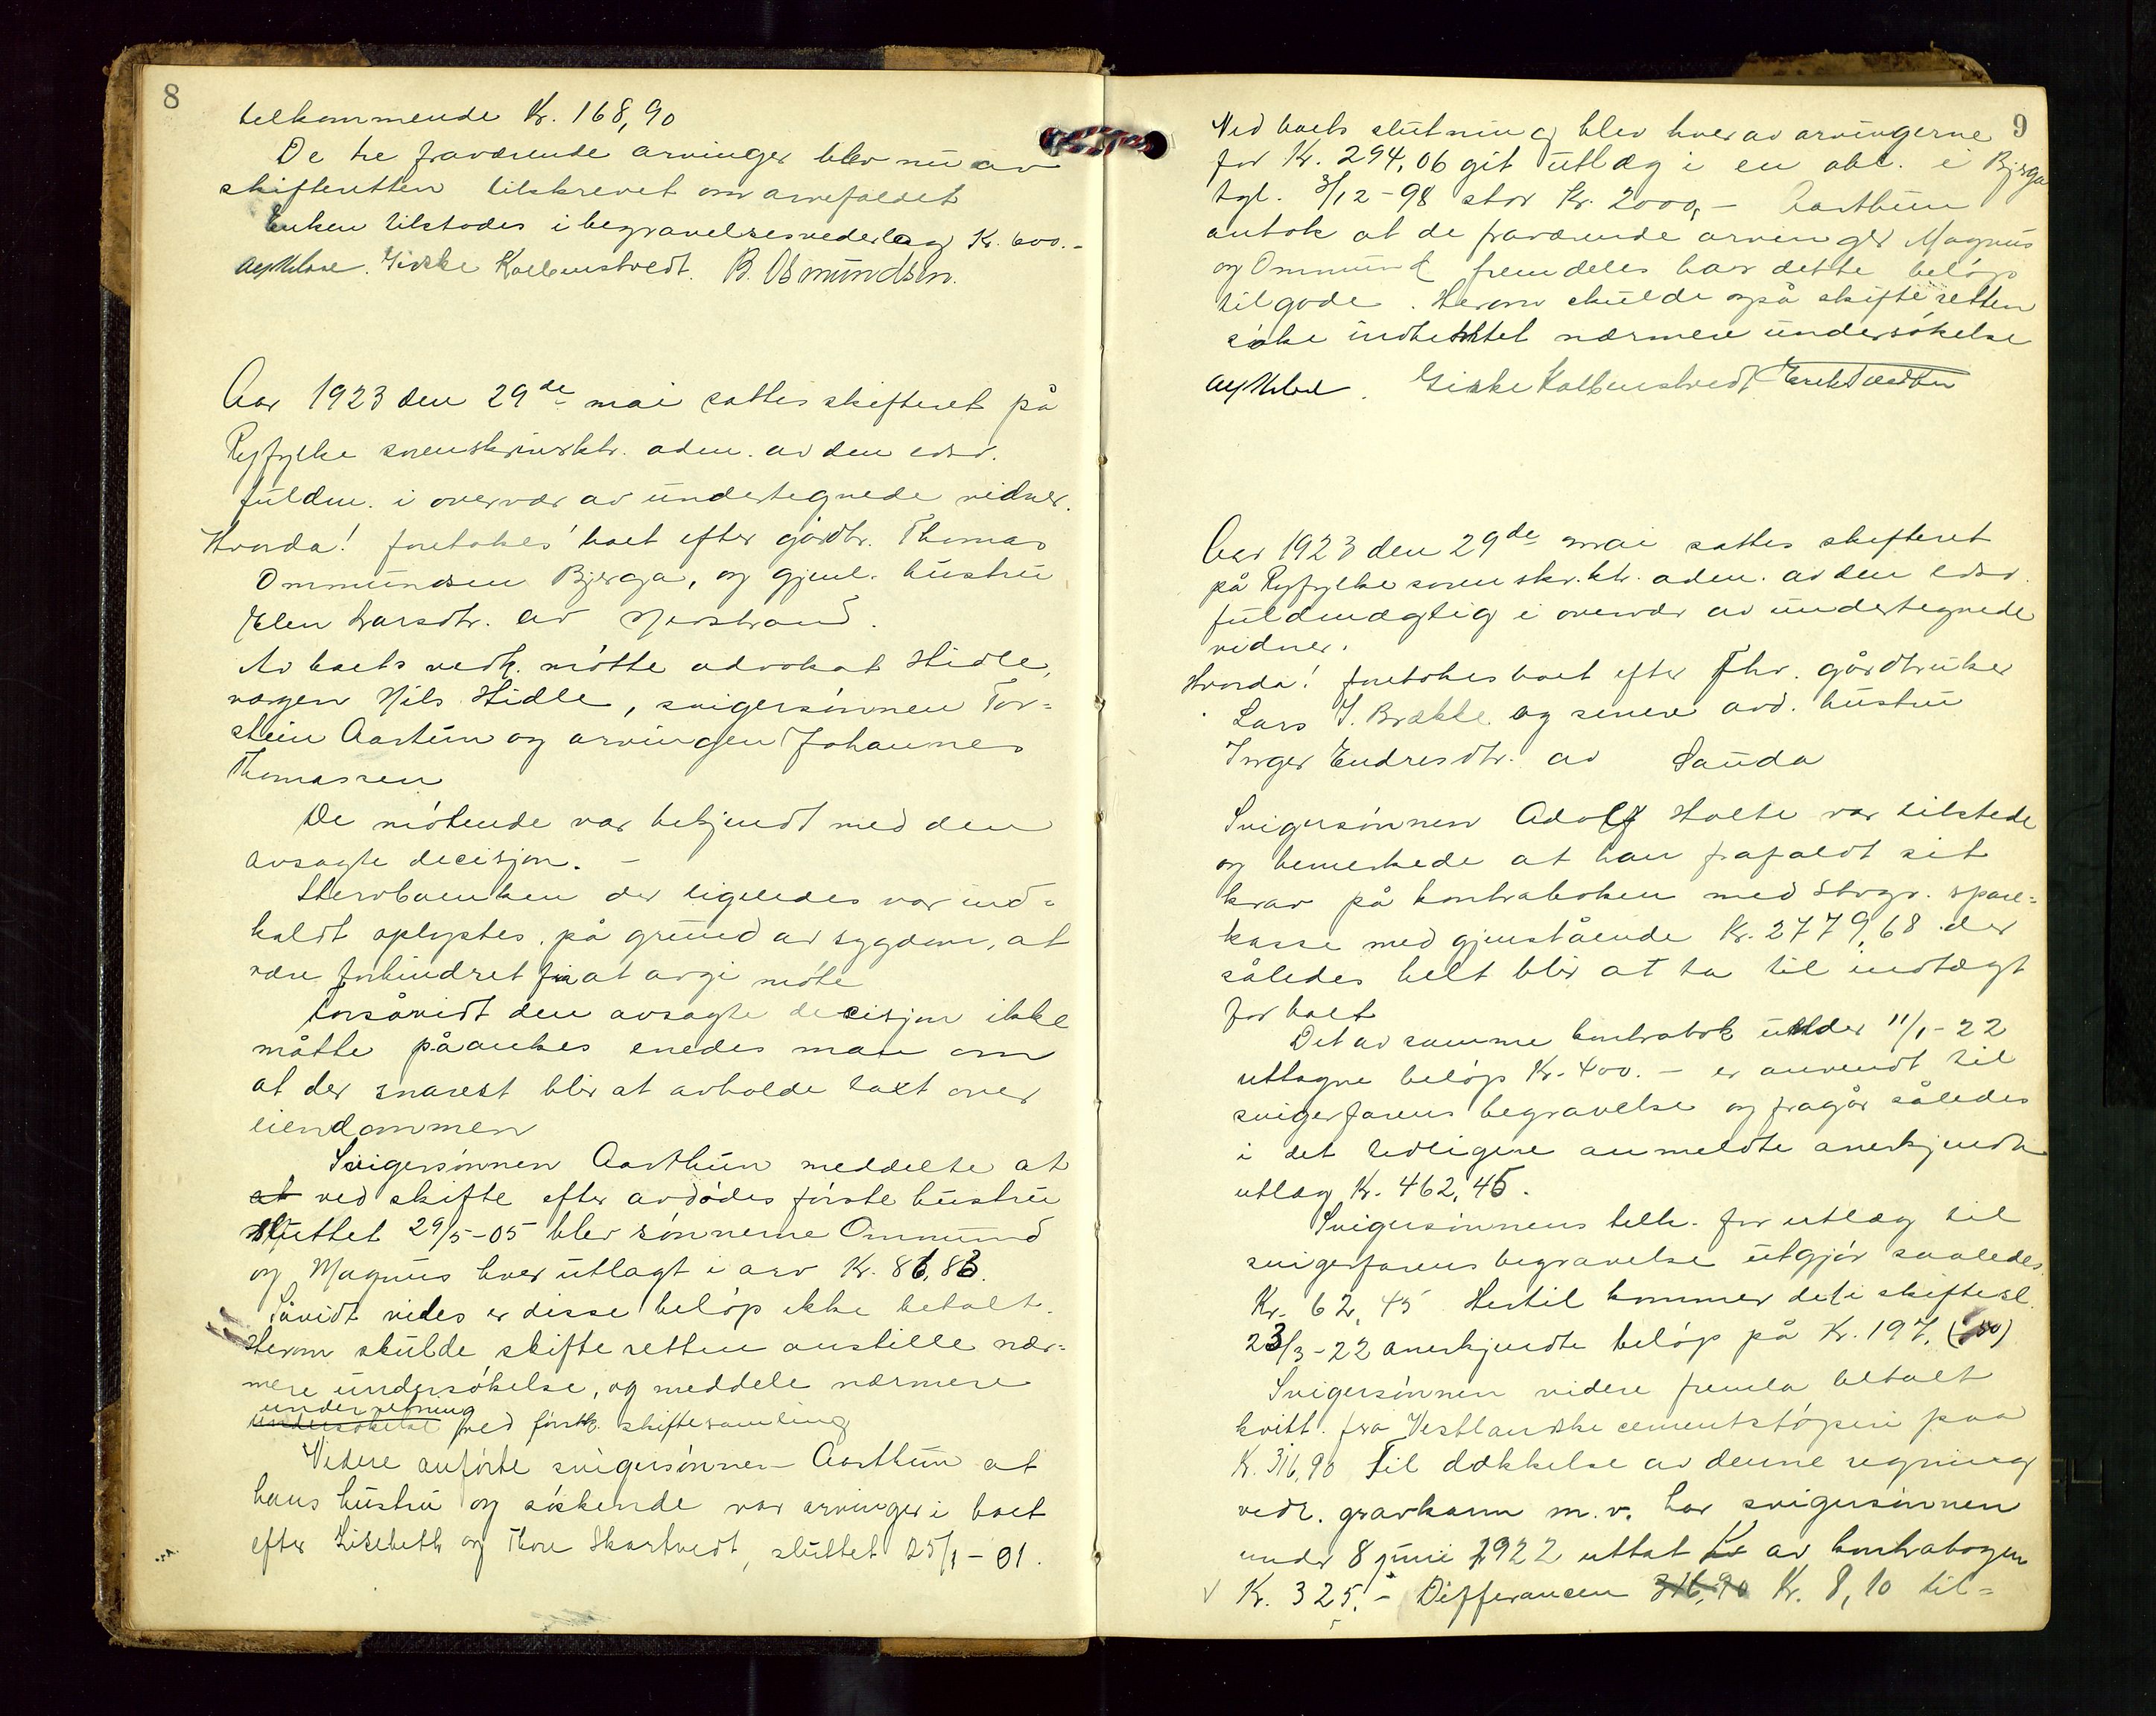 8
telkommende Kr. 168,90
De tre fraværende arvinger blev nu av
skifteretten tilskrevet om arvefaldet
Enken tilstodes i begravelsesvederlag Kr. 600.-
Giske Kolbenstvedt. B. Osmundsen.
Aar 1923 den 29de mai sattes skifteret på
Ryfylke sorenskriverktr. adm. av den edsv.
fuldm. i overvær av undertegnede vidner.
Hvorda! foretokes boet efter gårdbr. Thomas
Ommundsen Bjerga, og gjenl. hustru
Elen Larsdtr. av Nerstrand.
Av boets vedk. møtte advokat Hidle,
vergen Nils Hidle, svigersønnen Tor-
stein Aartun og arvingen Johannes
Thomassen
De møtende var bekjendt med den
avsagte decisjon. -
Stervboenken der ligeledes var ind-
kaldt oplystes på grund av sygdom, at
være forhindret fra at avgi møte
Forsåvidt den avsagte decisjon ikke
måtte påankes enedes man om
at der snarest blir at avholde taxt over
eiendommen
Svigersønnen Aarthun meddelte at
at ved skifte efter avdødes første hustru
sluttet 29/5-05 blev sønnerne Ommund
og Magnus hver utlagt i arv Kr. 86,83.
Såvidt vides er disse beløp ikke betalt.
Herom skulde skifteretten anstille nær-
mere undersøkelse, og meddele nærmere
underretning
undersøkelse ved førstk. skiftesamling
Videre anførte svigersønnen Aarthun at
hans hustru og søskende var arvinger i boet
efter Lisebeth og Tore Skartvedt, sluttet 25/1-01.
9
Ved boets slutning blev hver av arvingerne
for Kr. 294,06 git utlæg i en obl. i Bjerga
tgl. 3/12-98 stor Kr. 2000,- Aarthun
antok at de fraværende arvinger Magnus
og Ommund fremdeles har dette beløp
tilgode. Herom skulde også skifteretten
søke indhentet nærmere undersøkelse
Giske Kolbenstvedt
Aar 1923 den 29de mai sattes skifteret
på Ryfylke sorenskr.ktr. adm. av den edsv.
fuldmægtig i overvær av undertegnede
vidner.
Hvorda! foretokes boet efter fhv. gårdbruker
Lars J. Brække og senere avd. hustru
Inger Endresdtr. av Sauda
Svigersønnen Adolf Holte var tilstede
og bemerkede at han frafaldt sit
krav på kontraboken med Stvgr. spare-
kasse med gjenstående Kr. 2779,68 der
således helt blir at ta til indtægt
for boet
Det av samme kontrabok under 11/1-22
uttagne beløp Kr. 400.- er anvendt til
svigerfarens begravelse og fragår således
i det tidligere anmeldte anerkjendte
utlæg Kr. 462,45.
Svigersønnens tilh. for utlæg til
svigerfarens begravelse utgjør saaledes
Kr. 62,45 Hertil kommer det i skiftesl.
23/3-22 anerkjendte beløp på Kr. 197,
Svigersønnen videre fremla betalt
kvitt. fra Vestlandske cementstøperi paa
Kr. 316,90 Til dækkelse av denne regning
vedr. gravkarm m.v. har svigersønnen
under 8 juni 1922 uttat Kr av kontrabogen
Kr. 325.- Differansen 316,90 Kr. 8,10 til-